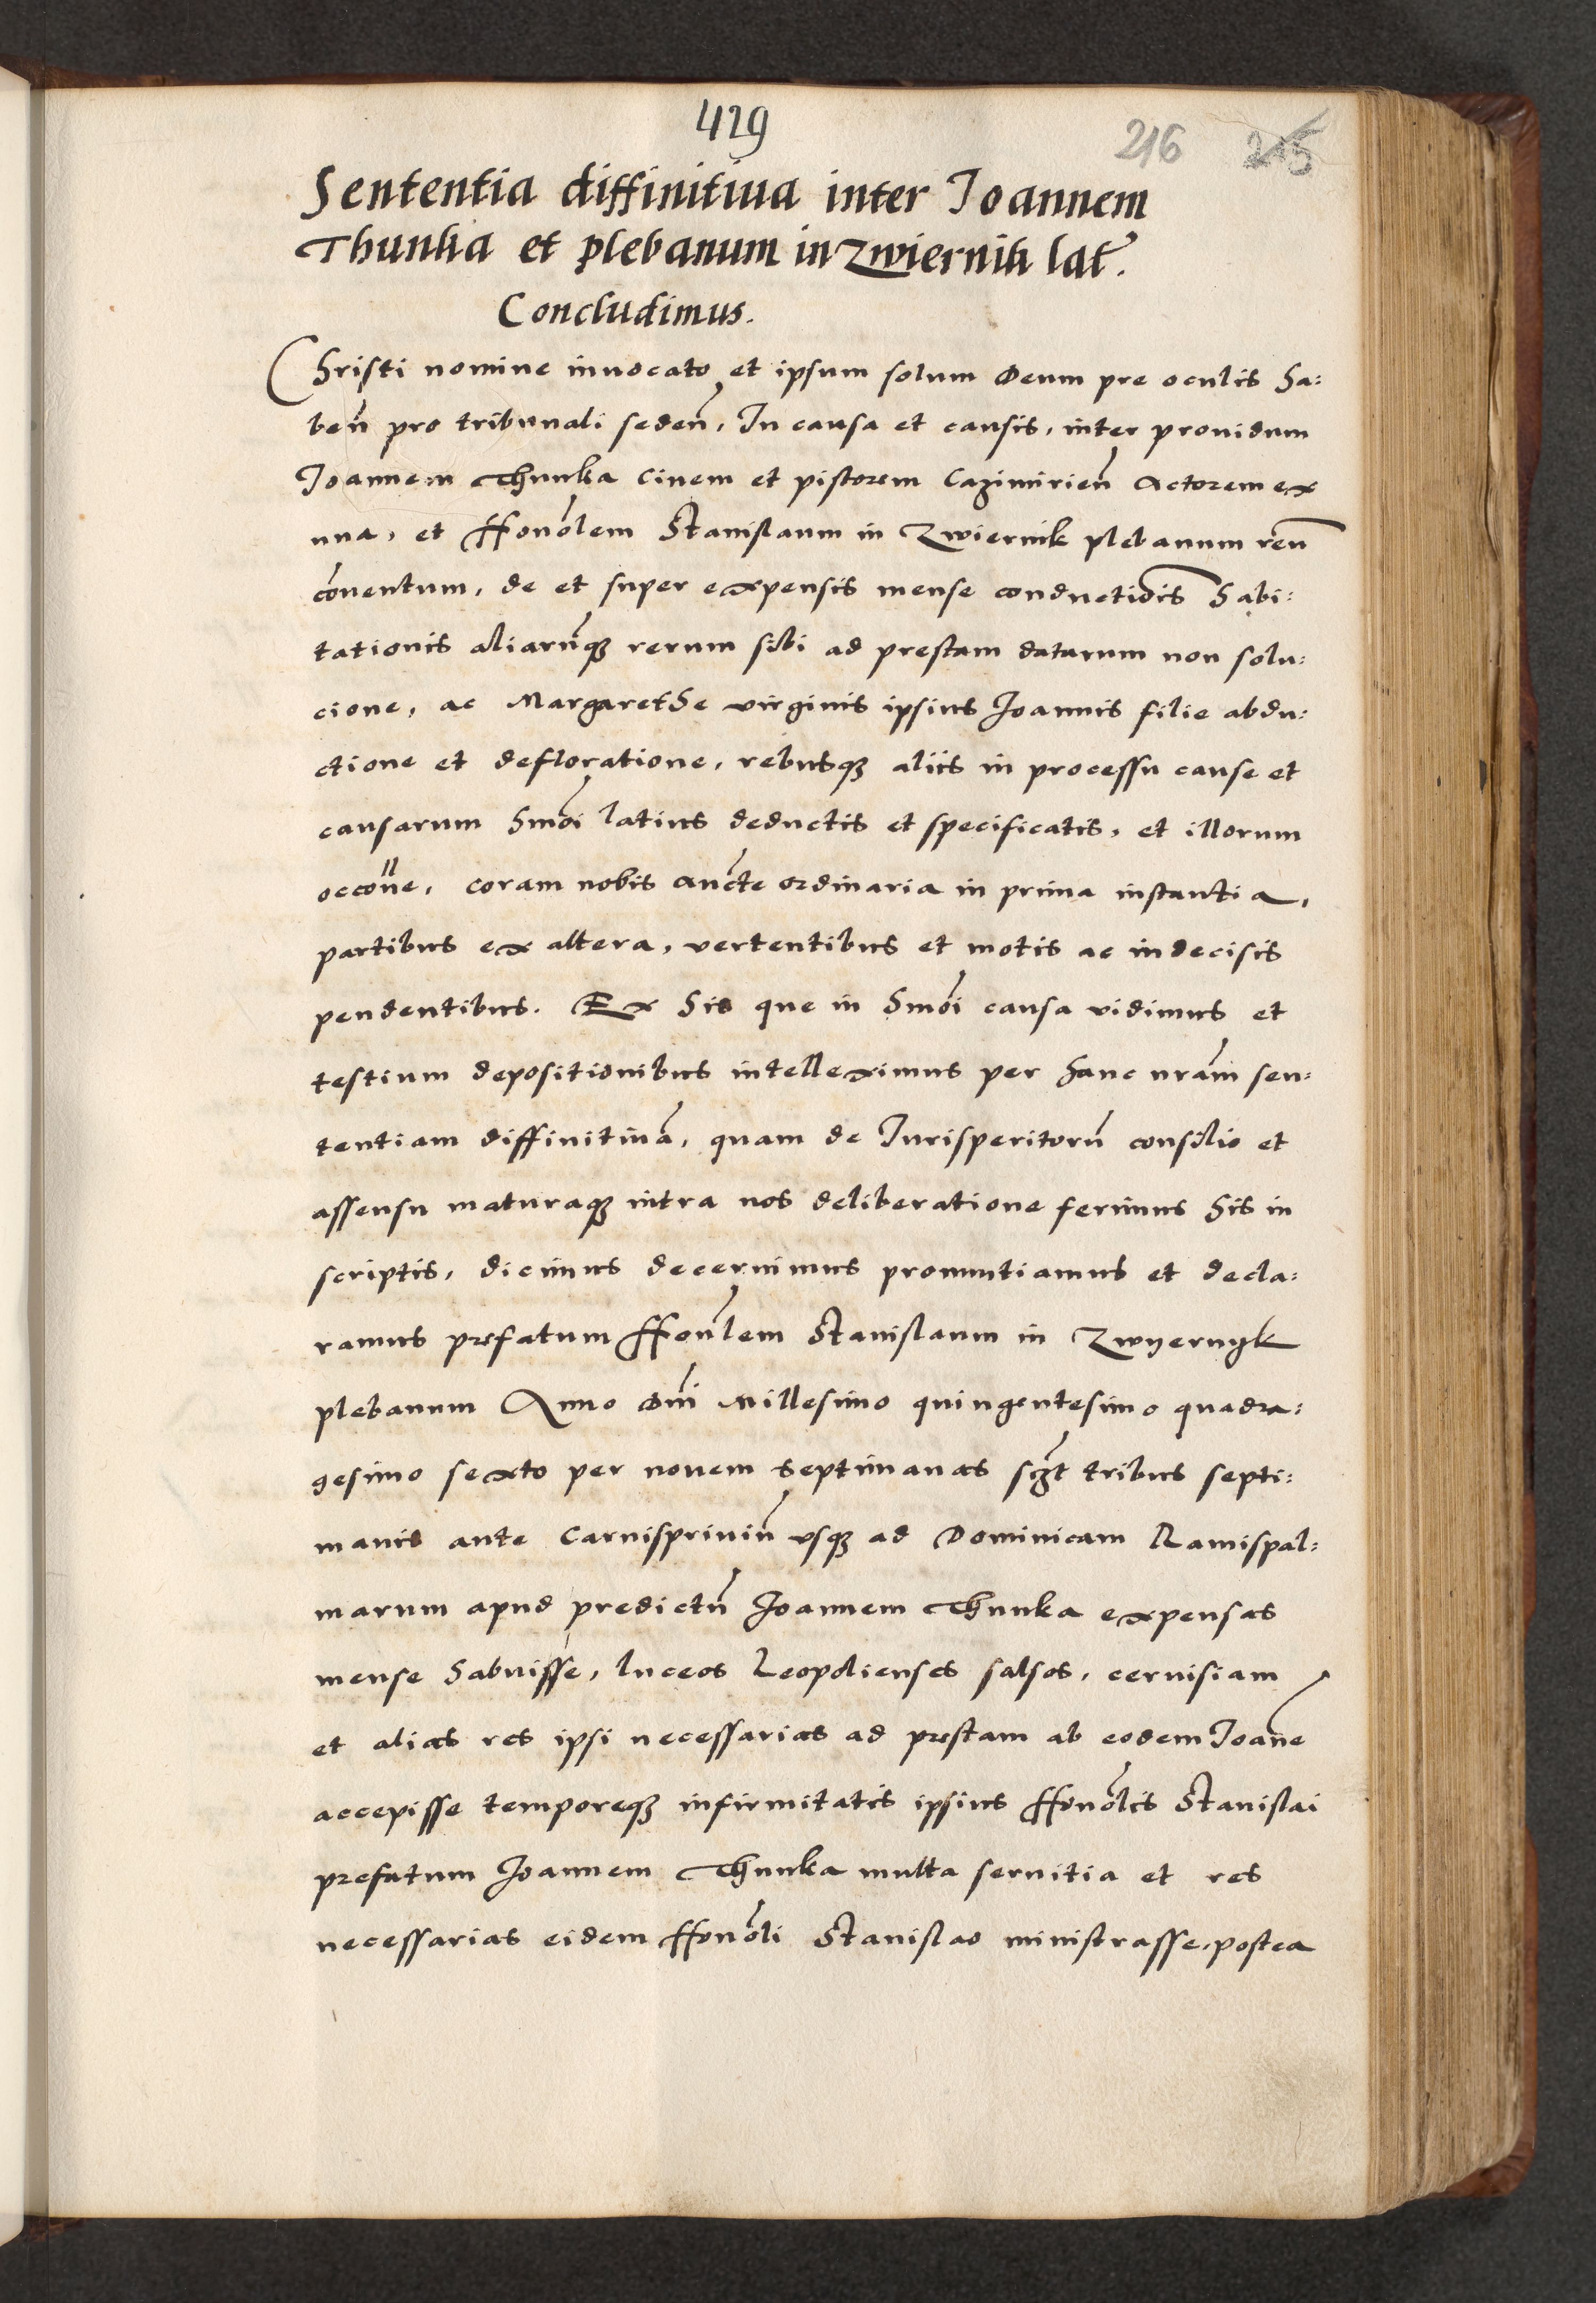 429
216 215
Sententia diffinitiua inter Ioannem
Thunka et plebanum in Zwiernik lat̃.
Concludimus.
Christi nomine inuocato et ipsum solum Deum pre oculis ha:
ben̄ pro tribunali seden̄, In causa et causis, inter prouidum
Joannem Thunka Ciuem et pistorem Cazimirien̄ Actorem ex
una, et Honōlem Stanislaum in Zwiernik plebanum reū
cōuentum, de et super expensis mense conductiōis habi:
tationis aliarūq₃ rerum sibi ad prestam datarum non solu:
cione, ac Margarethe virginis ipsius Joannis filie abdu:
ctione et defloratione, rebusq₃ aliis in processu cause et
causarum hmōi latius deductis et specificatis, et illorum
occōne, coram nobis aucte ordinaria in prima instantia,
partibus ex altera, vertentibus et motis ac indecisis
pendentibus. Ex his que in hmōi causa vidimus et
testium depositionibus intelleximus per hanc nrām sen:
tentiam diffinitiuā, quam de Iurisperitorū consilio et
assensu maturaq₃ intra nos deliberatione ferimus his in
scriptis, dicimus decernimus pronuntiamus et decla:
ramus prefatum Honlem Stanislaum in Zwyernyk
plebanum Anno Dn̄i Millesimo quingentesimo quadra:
gesimo sexto per nouem septimanas sc̄zt tribus septi:
manis ante Carnispriuiū vsq₃ ad Dominicam Ramispal:
marum apud predictū Joannem Thunka expensas
mense habuisse, luceos Leopolienses salsos, ceruisiam
et alias res ipsi necessarias ad prestam ab eodem Ioāne
accepisse temporeq₃ infirmitatis ipsius Honōlis Stanislai
prefatum Joannem Thunka multa seruitia et res
necessarias eidem Honōli Stanislao ministrasse, postea